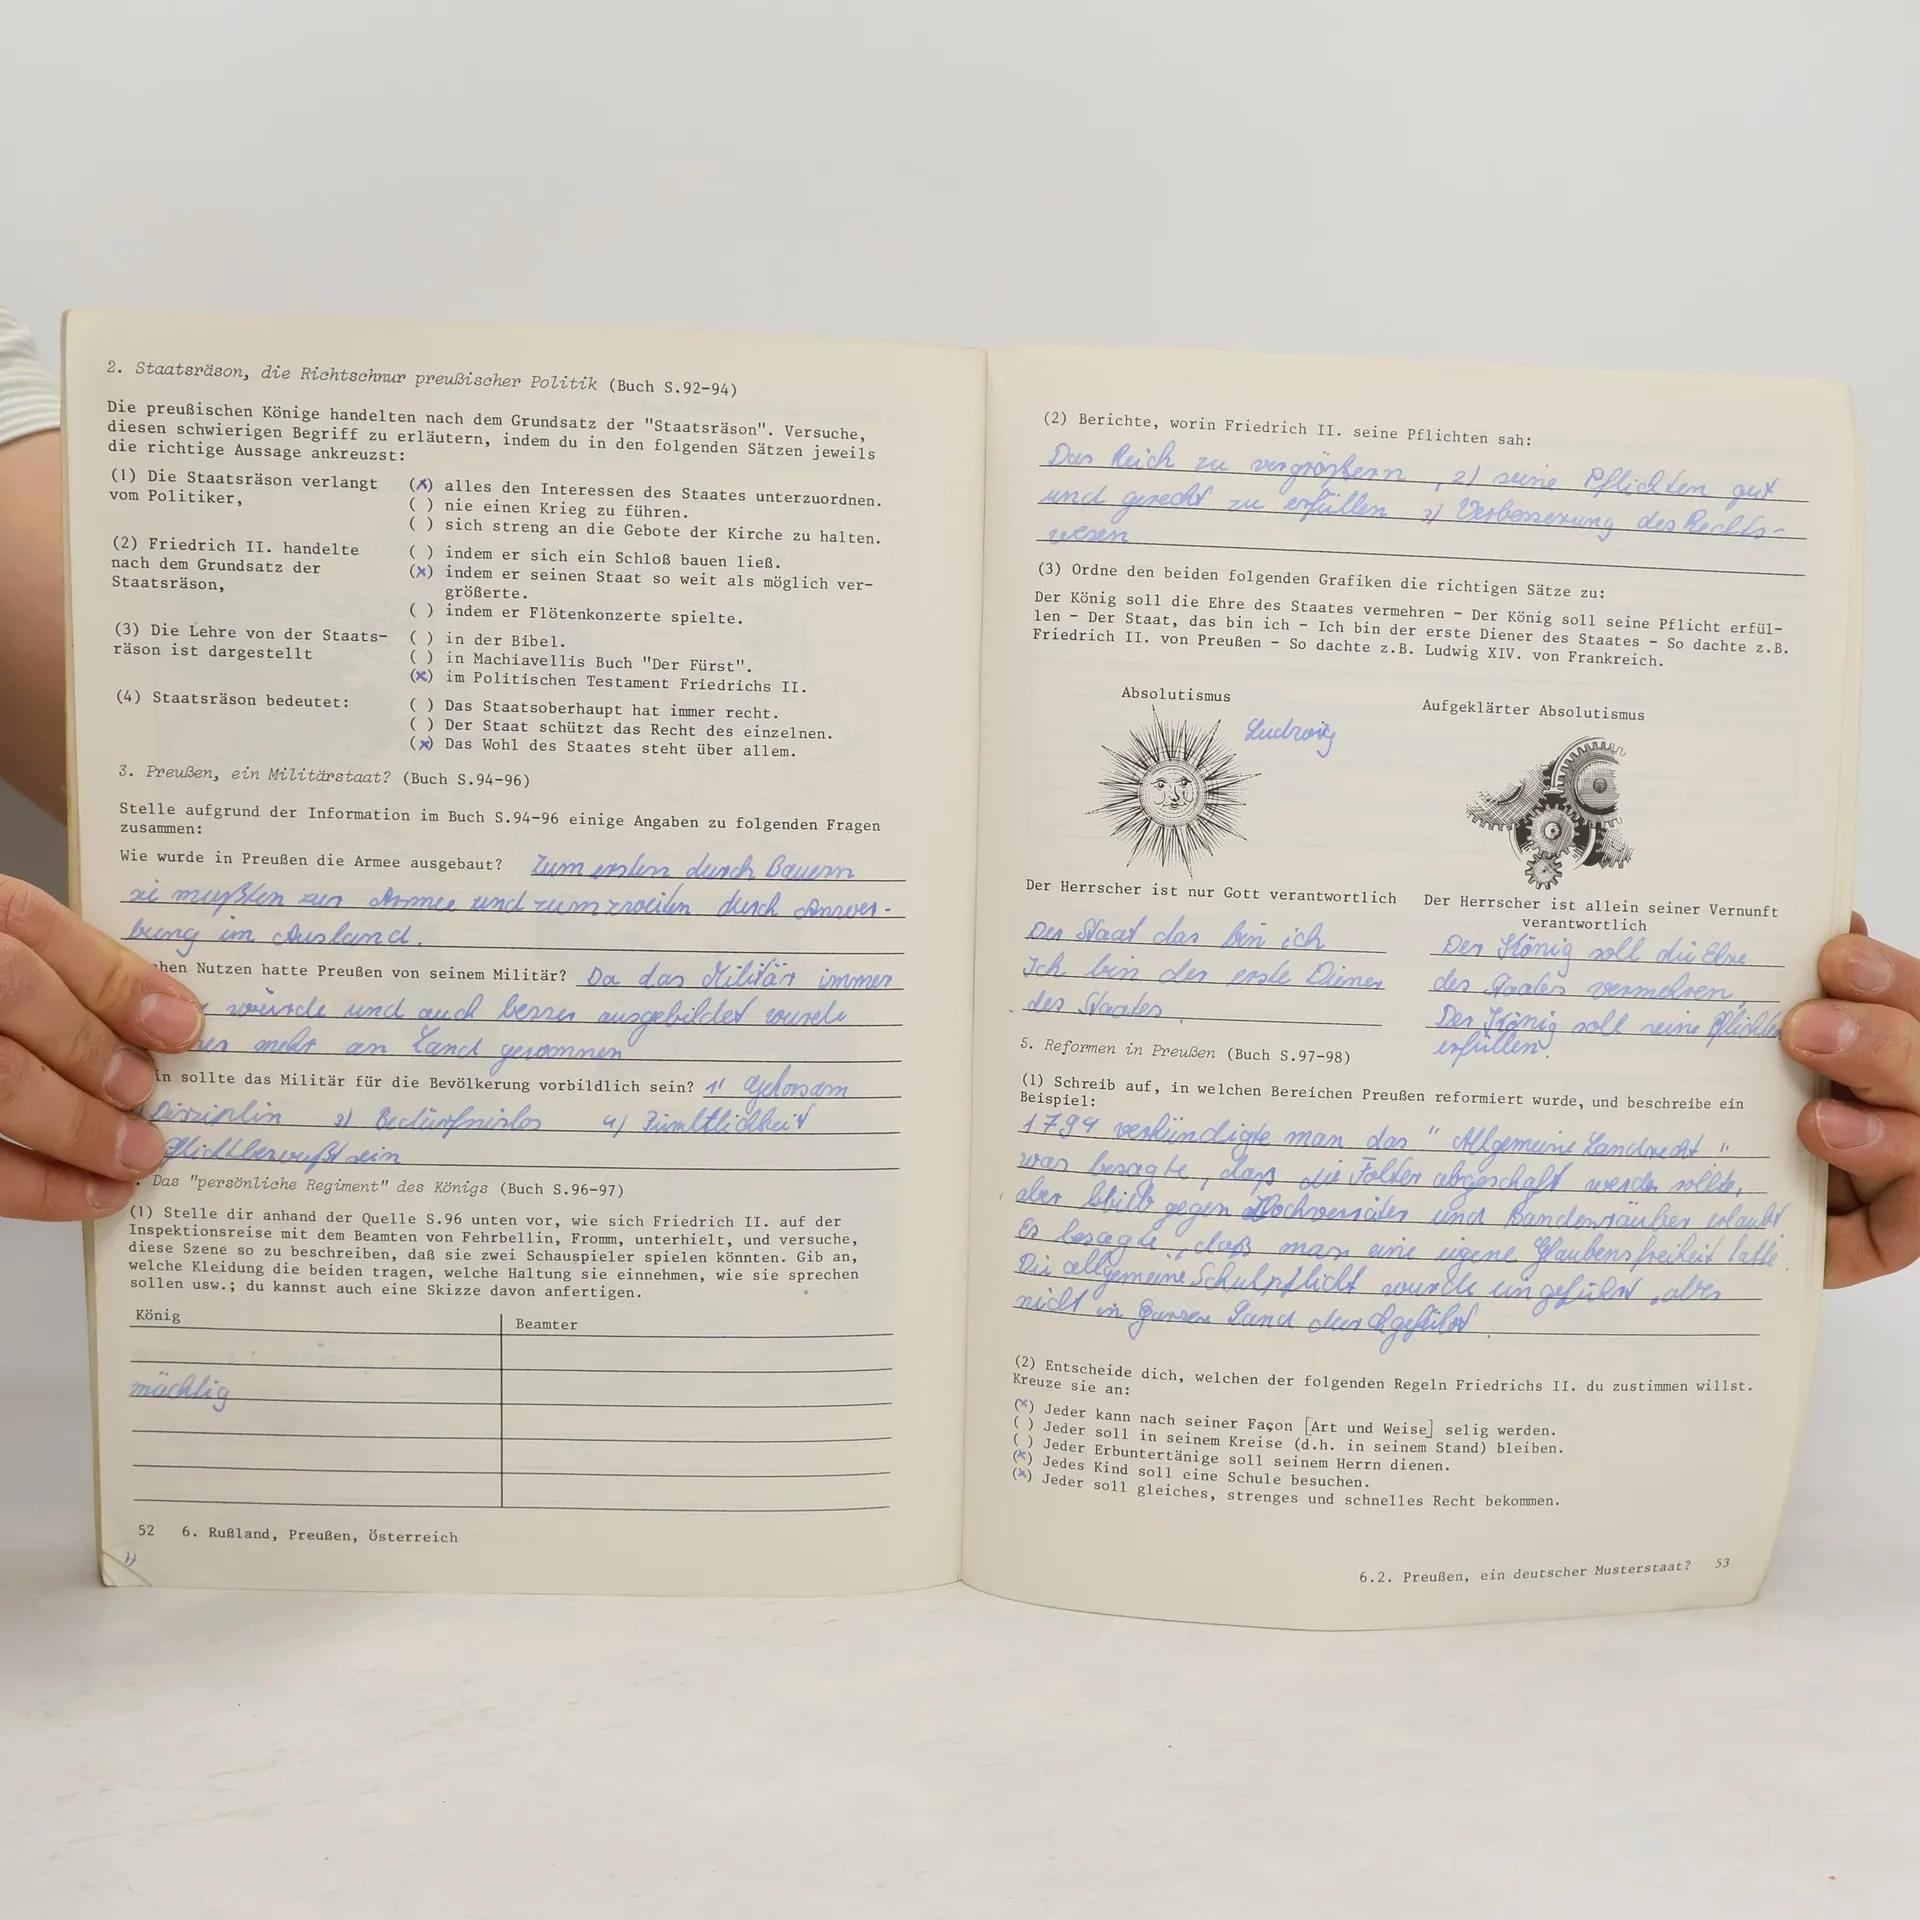 2. Staatsräson, die Richtschnur preußischer Politik (Buch S.92-94)
Die preußischen Könige handelten nach dem Grundsatz der "Staatsräson". Versuche,
diesen schwierigen Begriff zu erläutern, indem du in den folgenden Sätzen jeweils
die richtige Aussage ankreuzst:
(1) Die Staatsräson verlangt
vom Politiker,
(x) alles den Interessen des Staates unterzuordnen.
( ) nie einen Krieg zu führen.
( ) sich streng an die Gebote der Kirche zu halten.
(2) Friedrich II. handelte
nach dem Grundsatz der
Staatsräson,
( ) indem er sich ein Schloß bauen ließ.
(x) indem er seinen Staat so weit als möglich ver-
größerte.
( ) indem er Flötenkonzerte spielte.
(3) Die Lehre von der Staats-
räson ist dargestellt
( ) in der Bibel.
( ) in Machiavellis Buch "Der Fürst".
(x) im Politischen Testament Friedrichs II.
(4) Staatsräson bedeutet:
( ) Das Staatsoberhaupt hat immer recht.
( ) Der Staat schützt das Recht des einzelnen.
(x) Das Wohl des Staates steht über allem.
3. Preußen, ein Militärstaat? (Buch S.94-96)
Stelle aufgrund der Information im Buch S.94-96 einige Angaben zu folgenden Fragen
zusammen:
Wie wurde in Preußen die Armee ausgebaut? Zum ersten durch Bauern
sie mußten zur Armee und zum zweiten durch Anwer-
bung im Ausland.
hen Nutzen hatte Preußen von seinem Militär? Da das Militär immer
würde und auch besser ausgebildet wurde
mehr an Land gewonnen
in sollte das Militär für die Bevölkerung vorbildlich sein? 1) Gehorsam
Disziplin 3) Bedürfnislos 4)
Pflichtbewußtsein
. Das "persönliche Regiment" des Königs (Buch S.96-97)
(1) Stelle dir anhand der Quelle S.96 unten vor, wie sich Friedrich II. auf der
Inspektionsreise mit dem Beamten von Fehrbellin, Fromm, unterhielt, und versuche,
diese Szene so zu beschreiben, daß sie zwei Schauspieler spielen könnten. Gib an,
welche Kleidung die beiden tragen, welche Haltung sie einnehmen, wie sie sprechen
sollen usw.; du kannst auch eine Skizze davon anfertigen.
König Beamter
mächtig
52 6. Rußland, Preußen, Österreich
(2) Berichte, worin Friedrich II. seine Pflichten sah:
Das Reich zu vergrößern, 2) seine Pflichten gut
und gerecht zu erfüllen 3) Verbesserung des Rechts-
wesen
(3) Ordne den beiden folgenden Grafiken die richtigen Sätze zu:
Der König soll die Ehre des Staates vermehren - Der König soll seine Pflicht erfül-
len - Der Staat, das bin ich - Ich bin der erste Diener des Staates - So dachte z.B.
Friedrich II. von Preußen - So dachte z.B. Ludwig XIV. von Frankreich.
Absolutismus
Ludwig
Aufgeklärter Absolutismus
Der Herrscher ist nur Gott verantwortlich
Der Staat das bin ich
Ich bin der erste Diener
des Staates.
Der Herrscher ist allein seiner Vernunft
verantwortlich
Der König soll die Ehre
des Staates vermehren,
Der König soll seine Pflichten
erfüllen.
5. Reformen in Preußen (Buch S.97-98)
(1) Schreib auf, in welchen Bereichen Preußen reformiert wurde, und beschreibe ein
Beispiel:
1794 verkündigte man das "Allgemeine Landrecht"
was besagte, daß die Folter abgeschaft werden sollte,
aber blieb gegen Hochverräter und Bandenräuber erlaubt
Es besagte, daß man eine eigene Glaubensfreiheit hatte.
Die allgemeine Schulpflicht wurde eingeführt, aber
nicht in ganzen Land durchgeführt.
(2) Entscheide dich, welchen der folgenden Regeln Friedrichs II. du zustimmen willst.
Kreuze sie an:
(x) Jeder kann nach seiner Façon [Art und Weise] selig werden.
( ) Jeder soll in seinem Kreise (d.h. in seinem Stand) bleiben.
( ) Jeder Erbuntertänige soll seinem Herrn dienen.
(x) Jedes Kind soll eine Schule besuchen.
(x) Jeder soll gleiches, strenges und schnelles Recht bekommen.
6.2. Preußen, ein deutscher Musterstaat? 53